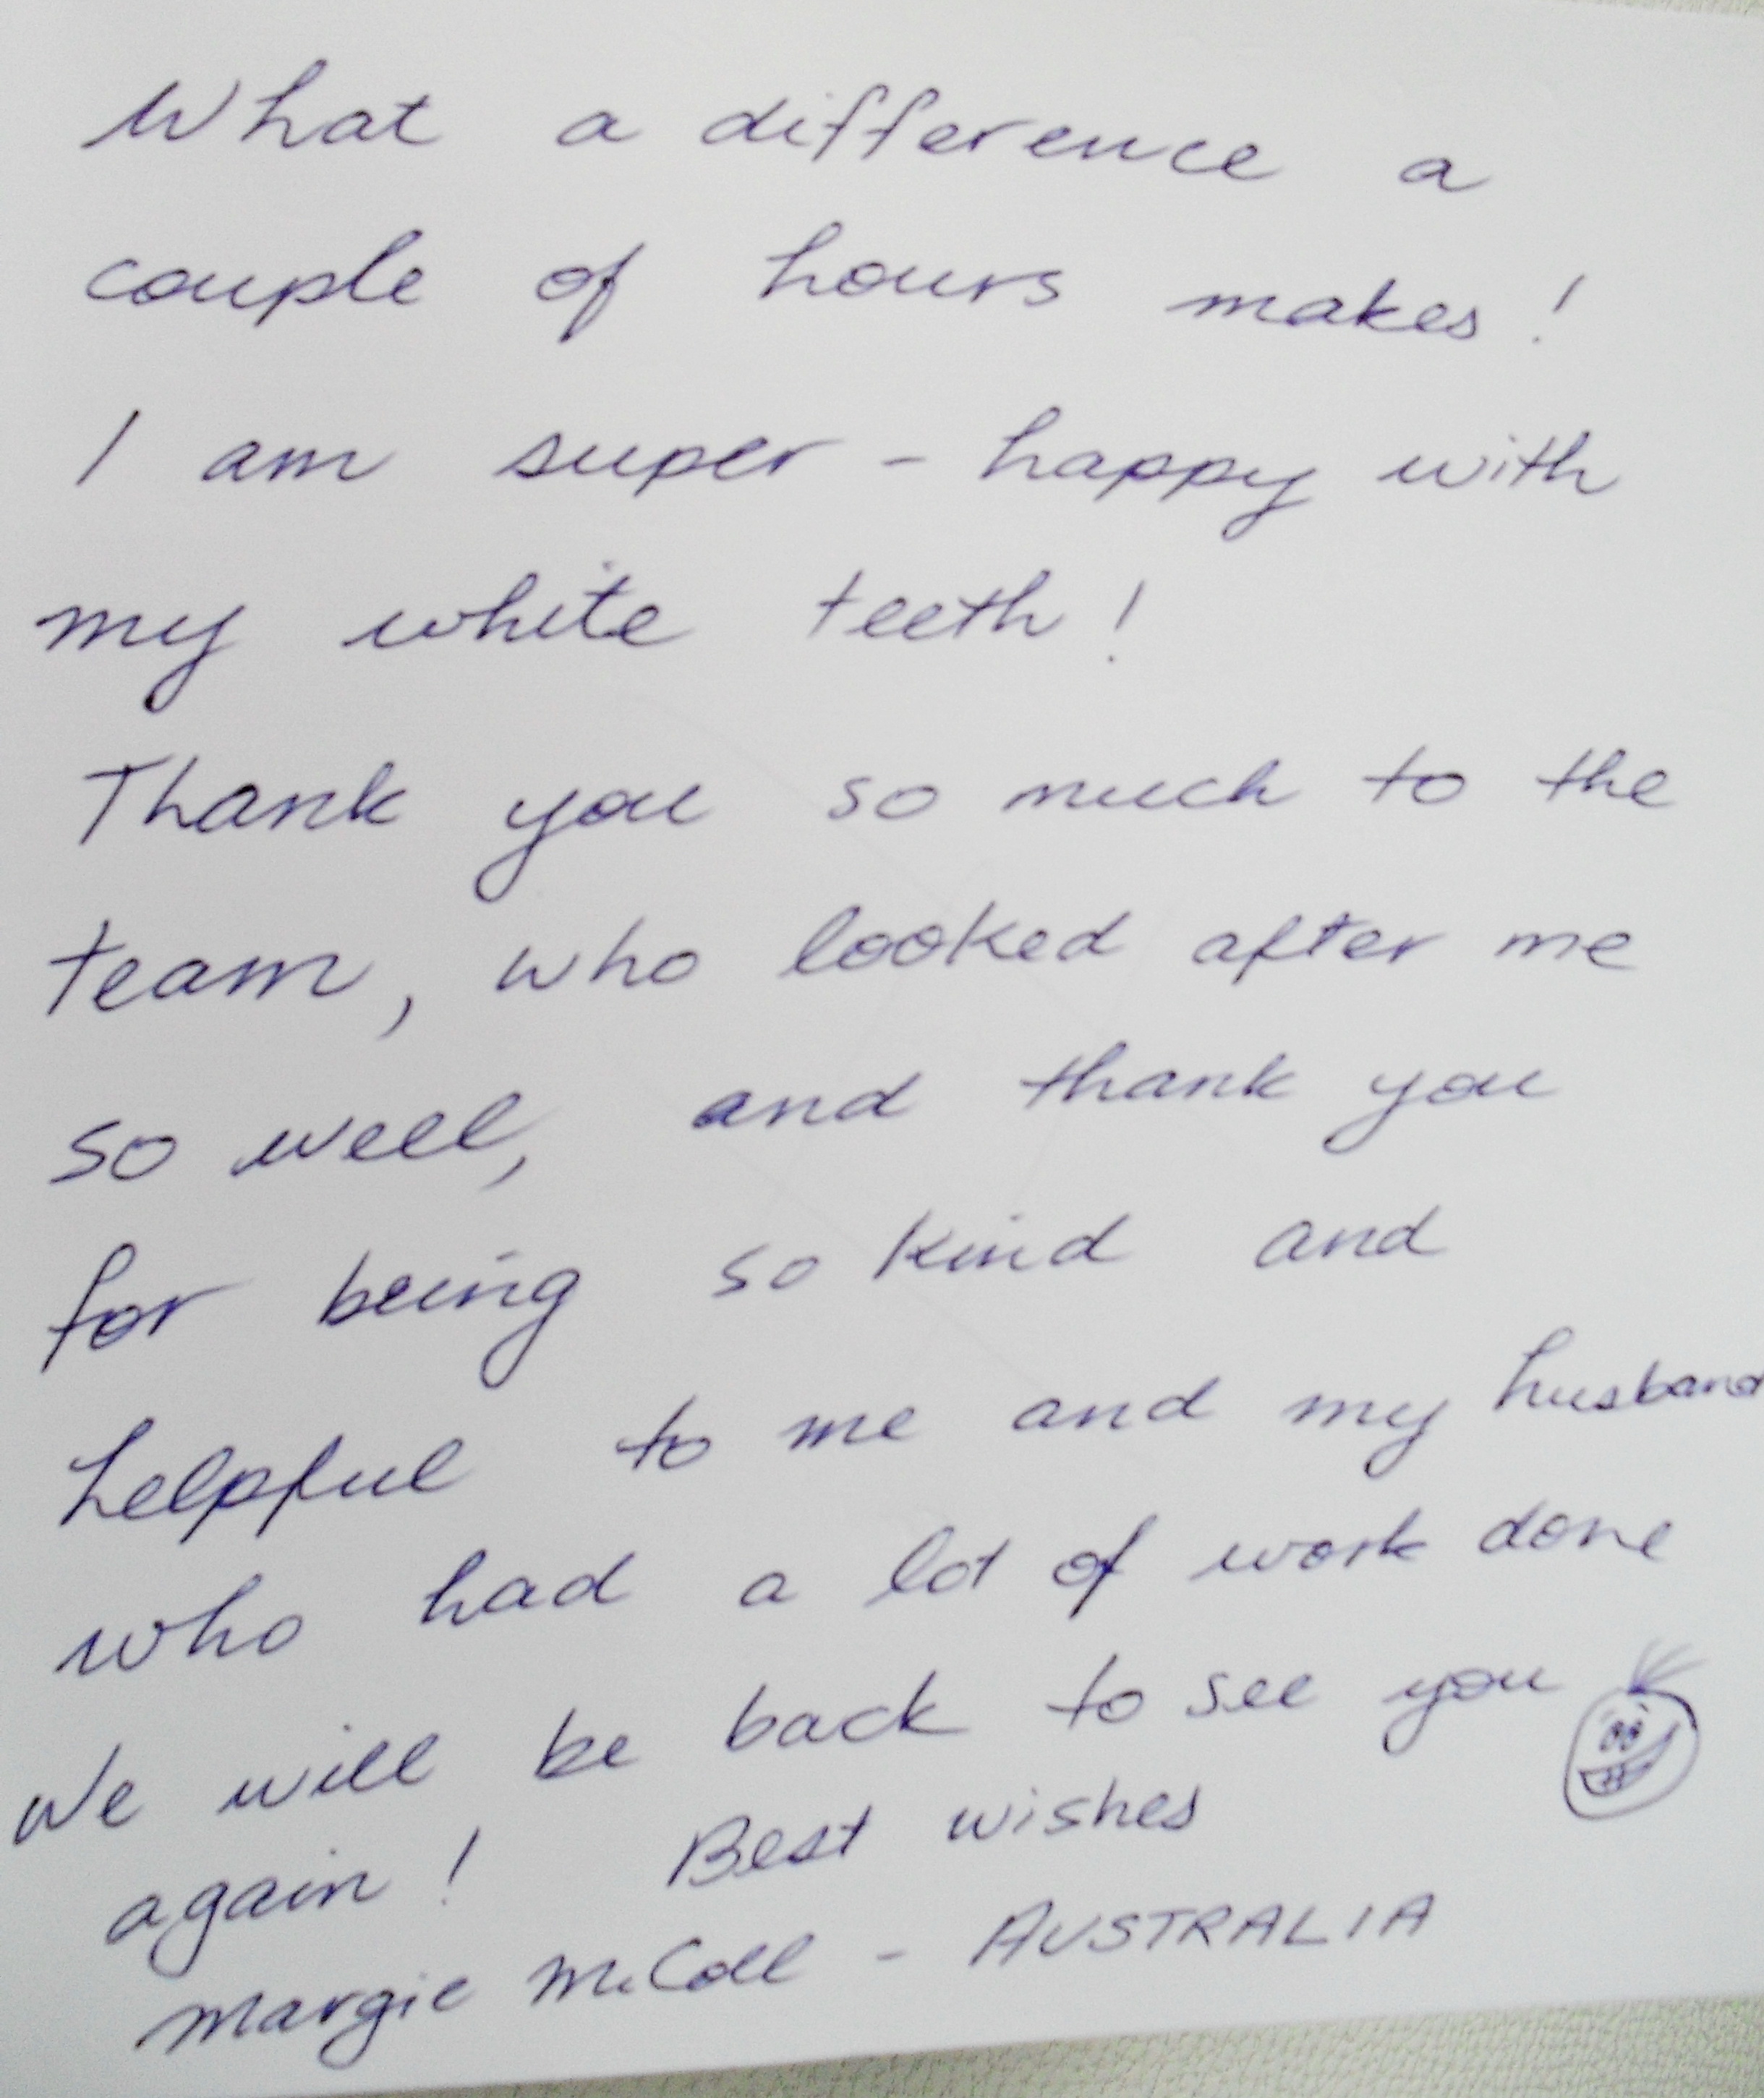 What a difference a
couple of hours makes!
I am super - happy with
my white teeth!
Thank you so much to the
team, who looked after me
so well, and thank you
for being so kind and
helpful to me and my husband
who had a lot of work done
We will be back to see you
again! Best wishes
Margie McColl - AUSTRALIA